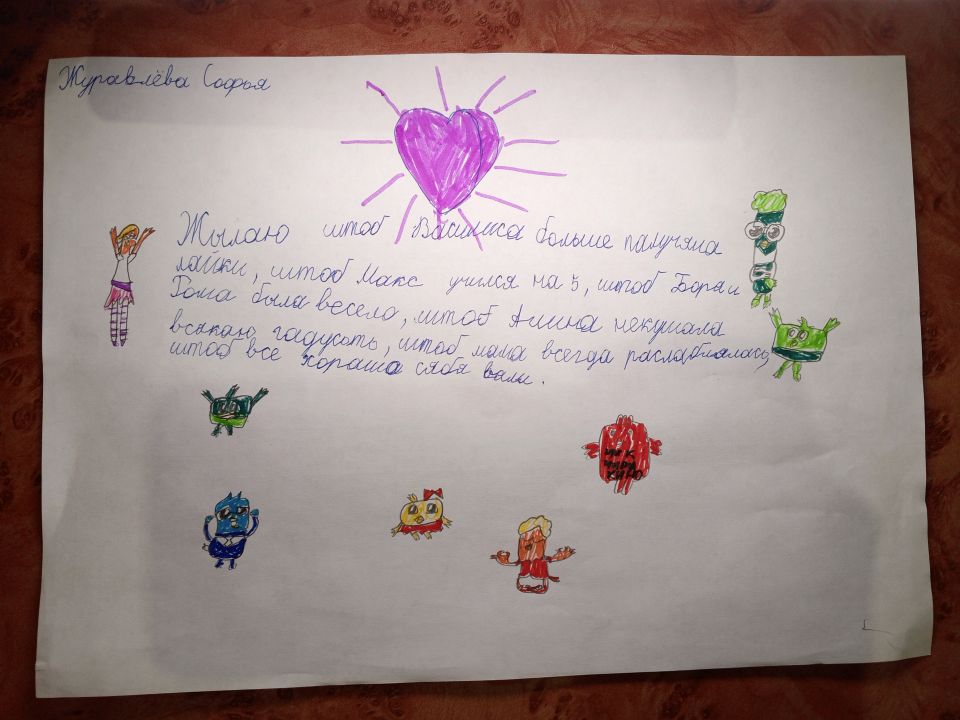 Журавлёва Софья
Жылаю штоб Василиса больше палучяла
лайки, штоб Макс учился на 5, штоб Боря и
Гома была весело, штоб Амина некушала
всякаю гадусть, штоб мама всегда
штоб все Хорашо сябя вели.